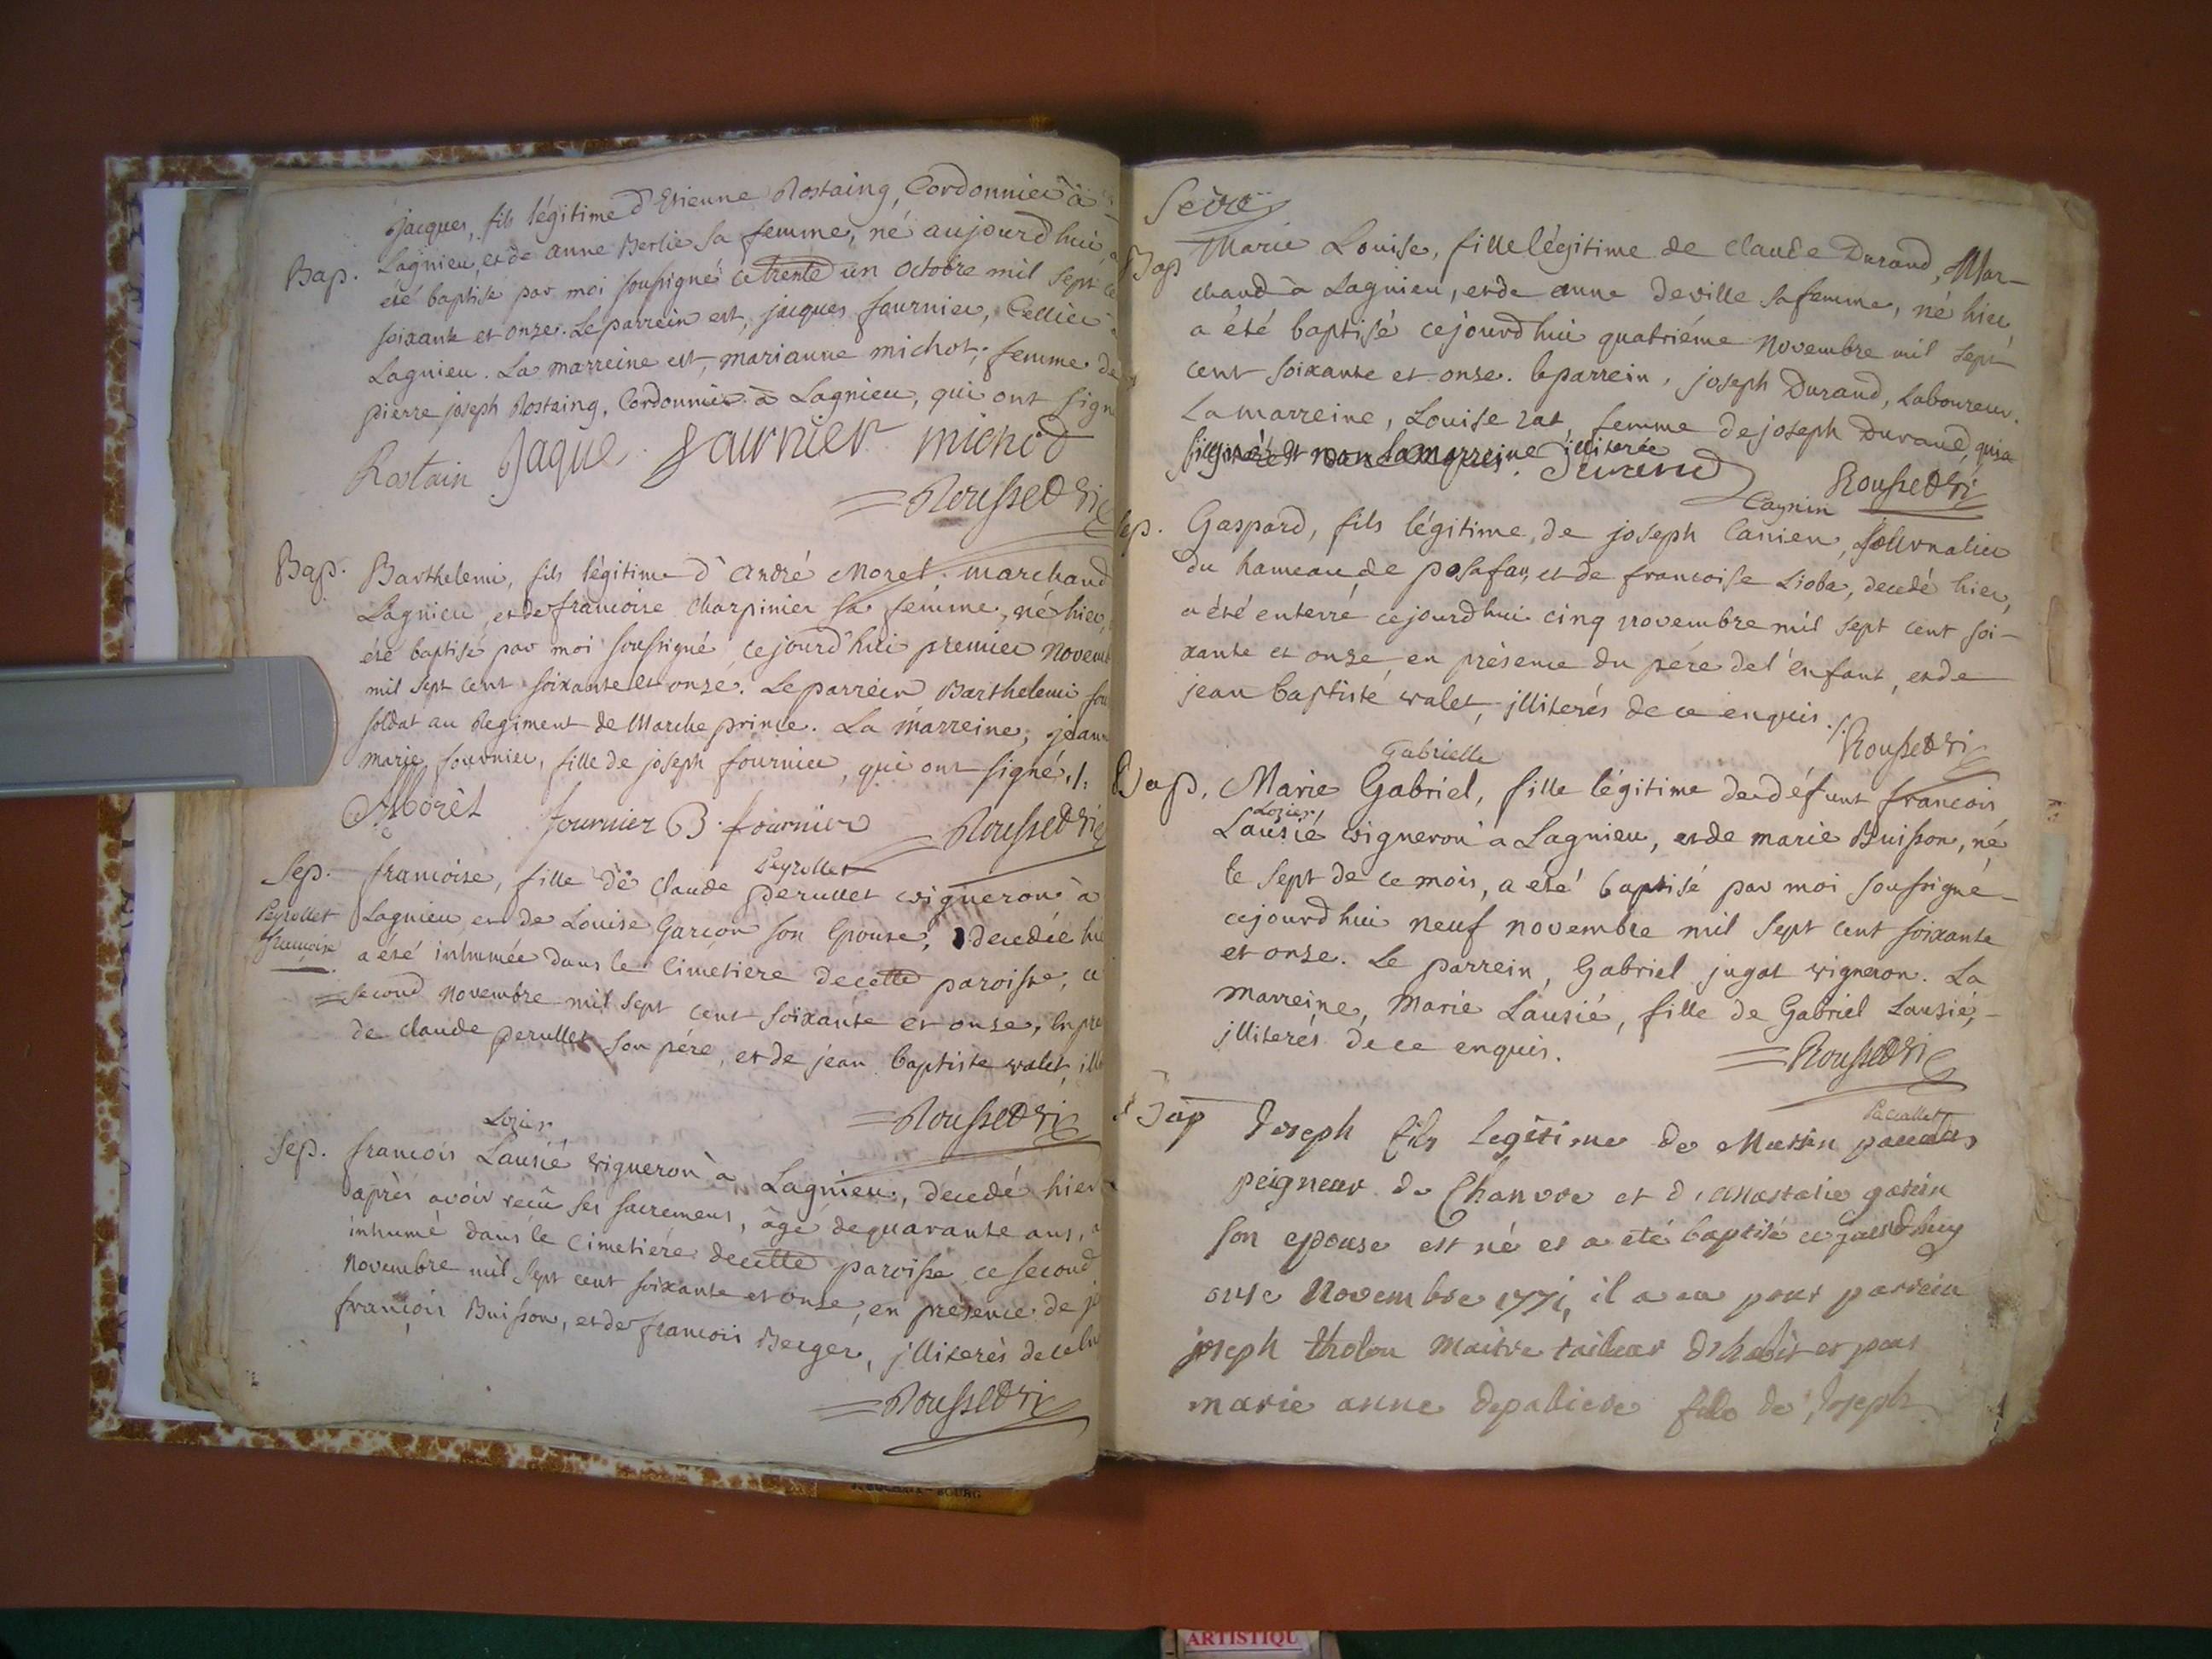 Jacques, fils légitime d'Etienne Rostaing, Cordonnier à
Bap. Lagnieu, et de anne Berlie sa femme, né aujourd'hui, a
été baptisé par moi soussigné ce trente un octobre mil sept ce
soixante et onze. Le parrein est, jacques fournier, Cellier à
Lagnieu. La marreine est, marianne michot, femme de
pierre joseph Rostaing, Cordonnier à Lagnieu, qui ont sign
Rostain Jaque fournier michod
Rousset Vi
Bap. Barthelemi, fils légitime d'andré Morel marchand
Lagnieu, et de francoise Charpinier sa femme, né hier,
été baptisé par moi soussigné, cejourd'hui premier novemb
mil sept cent soixante et onze. Le parrein Barthelemi fou
soldat au Regiment de Marche prince. La marreine, jeanne
marie fournier, fille de joseph fournier, qui ont signé ./.
Morèl fournier B. fournier Rousset Vi
Peyrollet
Sep. francoise, fille de claude perullet vigneron à
Peyrollet Lagnieu et de Louise Garçon son Epouse, decedée hie
francoise a été inhumée dans le Cimetiere de cette paroisse, ce
second novembre mil sept cent soixante et onze, en pre
de claude perullet son pére, et de jean baptiste valet, illi
Rousset Vi
Lozier
Sep. francois Lausié vigneron à Lagnieu, decedé hier
après avoir recû ses sacremens, âgé de quarante ans, a
inhumé dans le Cimetiére de cette paroisse ce second
novembre mil sept cent soixante et onze, en présence de j
françois Buisson, et de francois Berger, illiterés de ce
Rousset Vi
Seize
Bap Marie Louise, fille légitime de claude Durand, Mar-
chand à Lagnieu, et de anne deville sa femme, né hier
a été baptisé cejourd'hui quatriéme novembre mil sept
cent soixante et onze. le parrein, joseph Durand, Laboureur.
La marreine, Louise rat, femme de joseph Durand, qui a
signé et non la marreine illiterée Durand
Rousset Vi
Cagnin
Sep. Gaspard, fils légitime, de joseph Canien, Journalier
du hameau de posafau, et de francoise Lioba, decedé hier,
a été enterré cejourd'hui cinq novembre mil sept cent soi-
xante et onze, en présence du pére de l'enfant, et de
jean baptiste valet, illiterés de ce enquis ./.
Rousset Vi
Gabrielle
Bap. Marie Gabriel, fille légitime de défunt francois
Lozier
Lausié vigneron a Lagnieu, et de marie Buisson, né
le sept de ce mois, a eté baptisé par moi soussigné-
cejourd'hui neuf novembre mil sept cent soixante
et onze. Le parrein, Gabriel jugat vigneron. La
marreine, Marie Lausié, fille de Gabriel Lausié,-
illiterés de ce enquis.
Rousset Vi
Pacallet
Bap Joseph fils legitime de Martin pacalet
peigneur de Chanvre et d'anastasie garin
son epouse est né et a eté baptisé ce jourdhuy
onze Novembre 1771, il a eu pour parrein
joseph tholon maitre tailleur d'habit et pour
marie anne depaliere fille de Joseph
ARTISTIQU